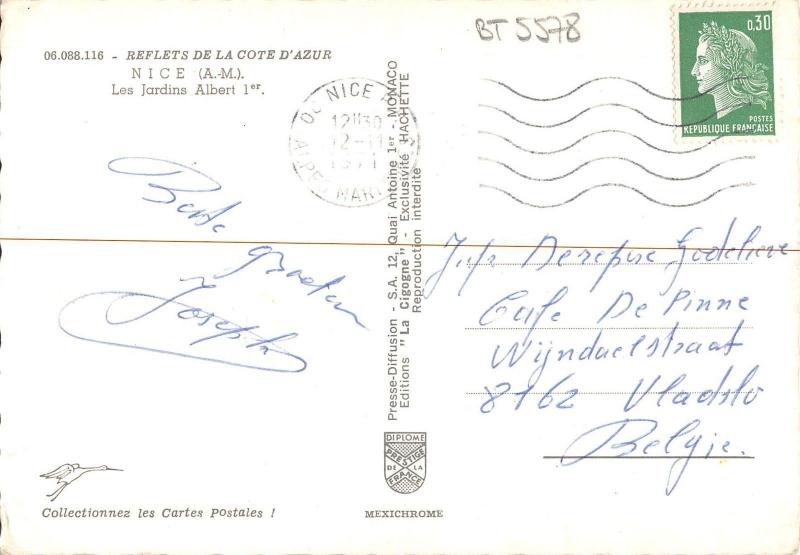 BT 5578
06.088.116 - REFLETS DE LA COTE D'AZUR
NICE (A.-M.).
Les Jardins Albert 1er.
0,30
POSTES
REPUBLIQUE FRANÇAISE
NICE
12H30
12-11
1971
ALPES MAR
Beste groeten
Joseph
Presse-Diffusion - S.A. 12, Quai Antoine 1er - MONACO
Editions "La Cigogne" - Exclusivité HACHETTE
Reproduction interdite
Jufr Derepere Godelieve
Cafe De Pinne
Wijndaelstraat
8162 Vladslo
Belgje.
DIPLOME
PRESTIGE
DE LA
FRANCE
Collectionnez les Cartes Postales !
MEXICHROME